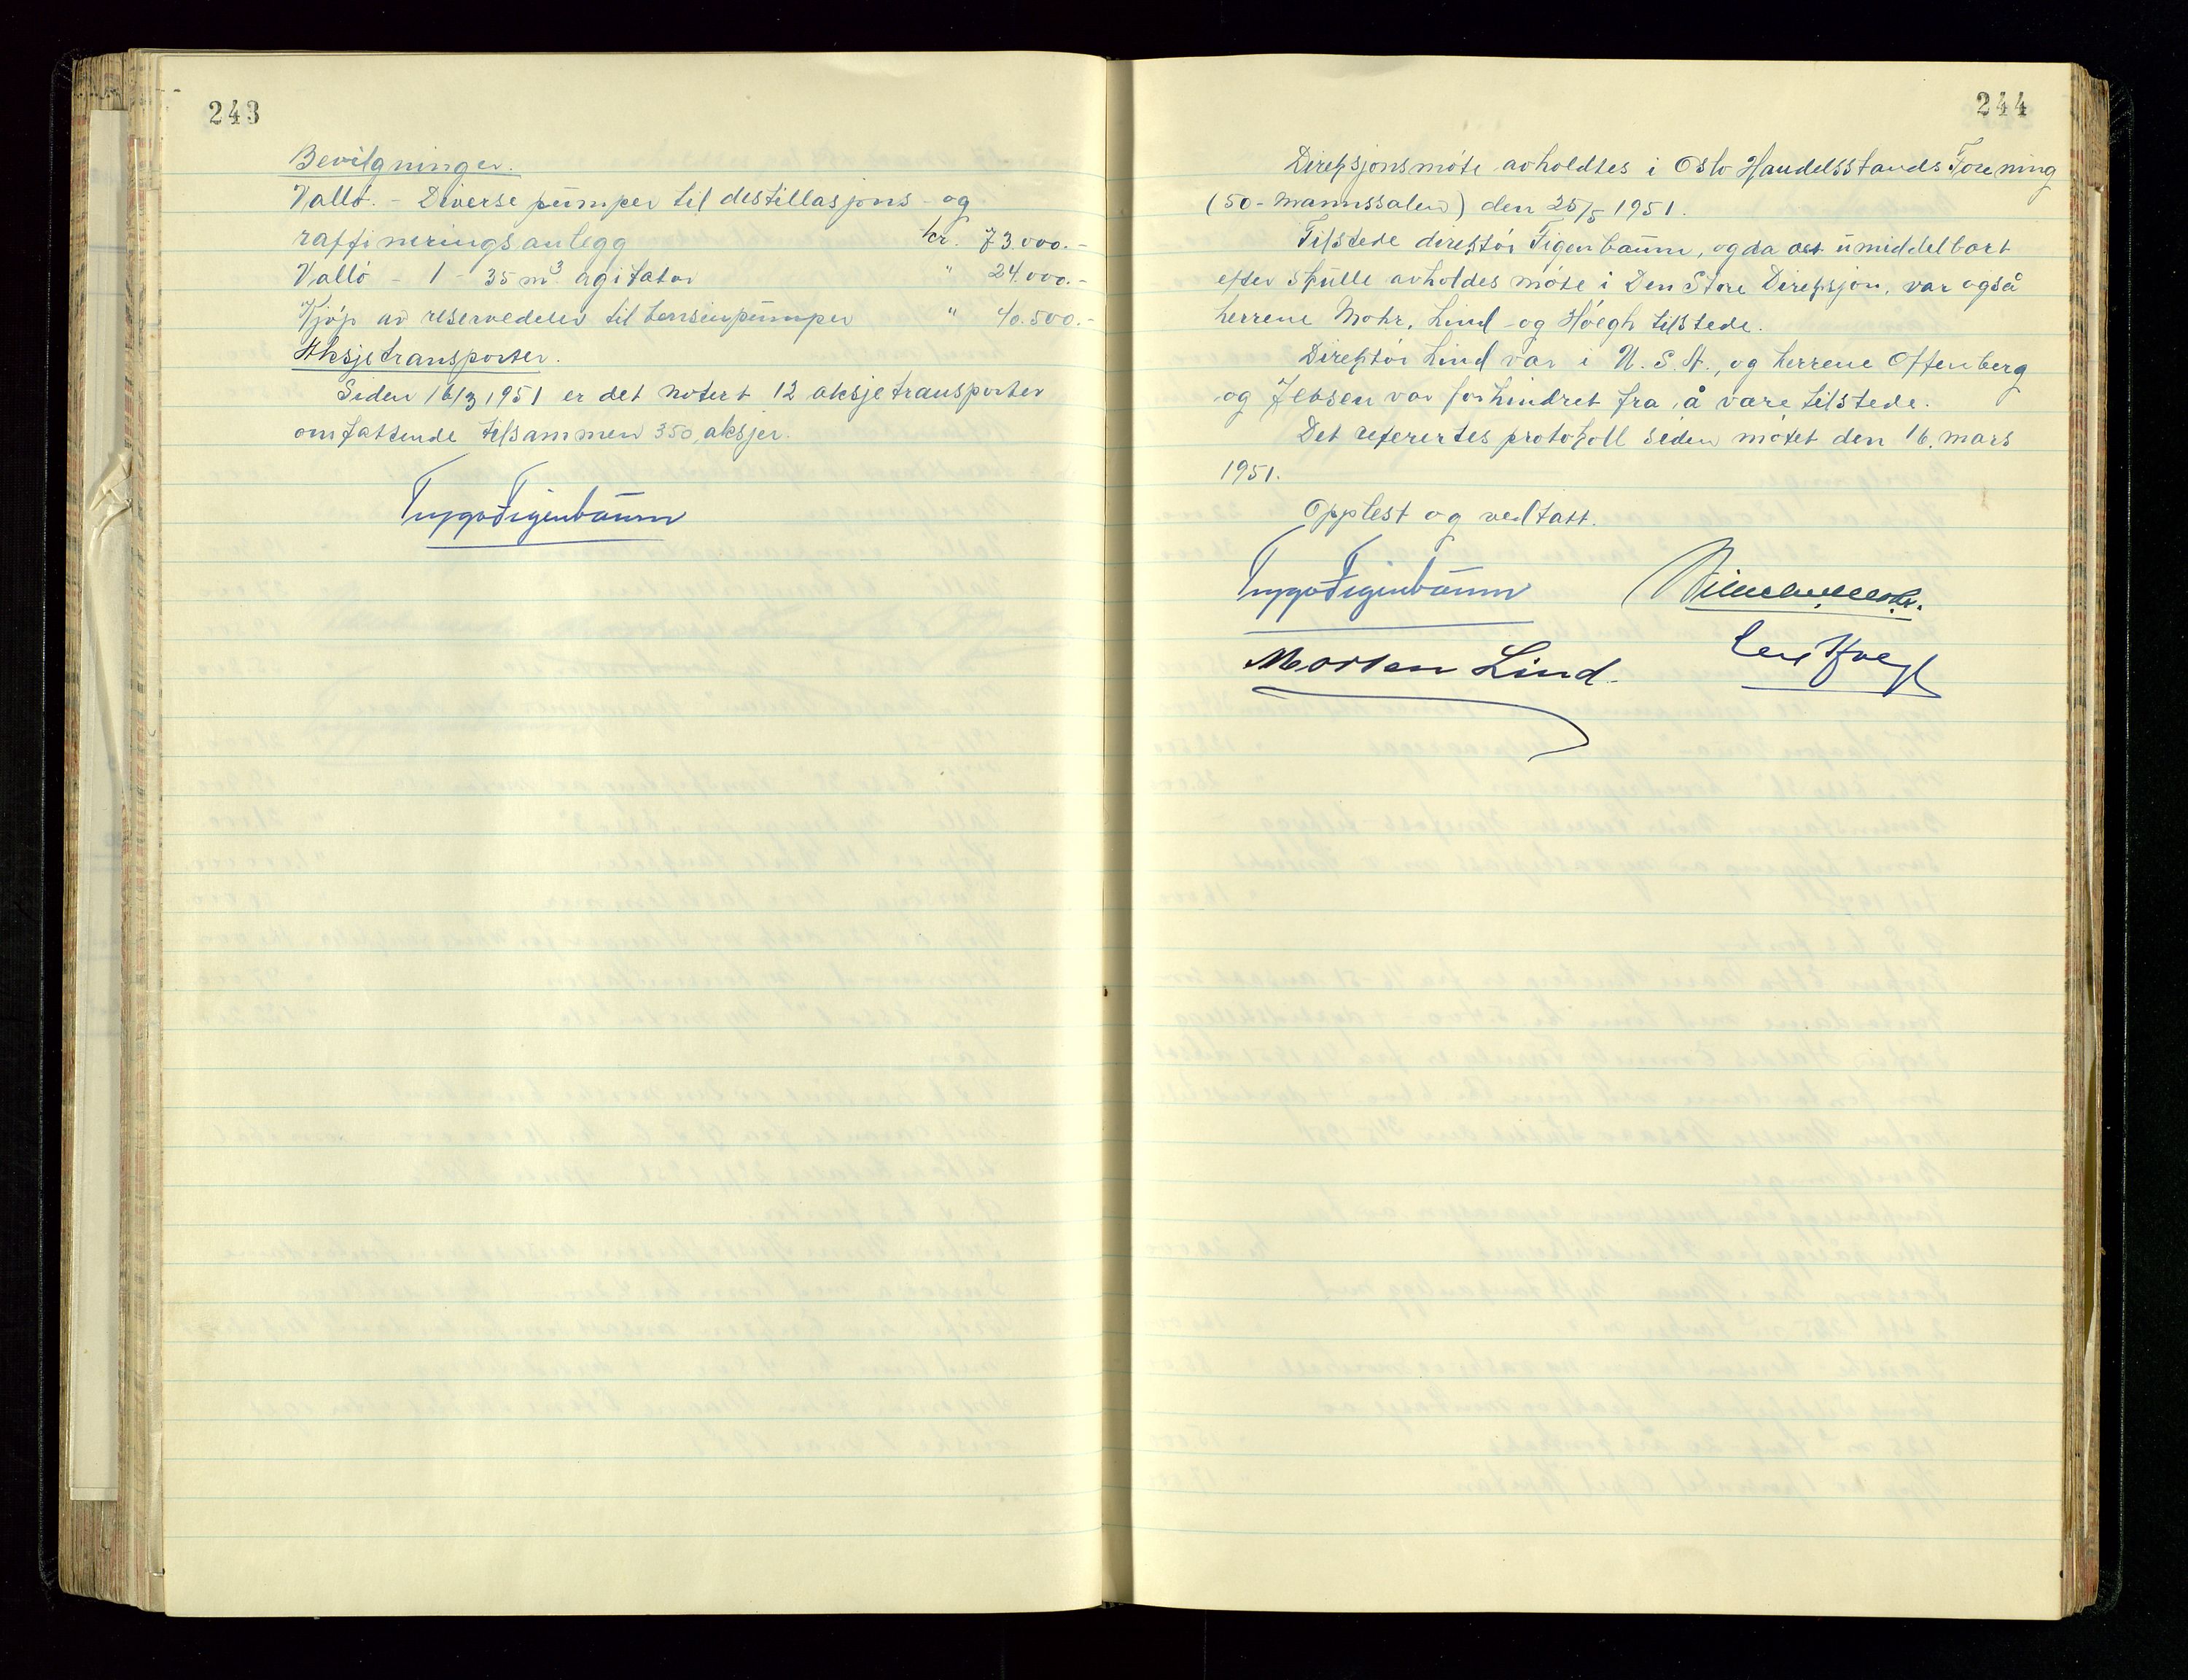 243
Bevilgninger.
Vallö. - Diverse pumper til destillasjons - og
raffineringsanlegg kr. 73.000.-
Vallö - 1 - 35 m³ agitator " 24.000.-
Kjöp av reservedeler til bensinpumper " 40.500.-
Aksjetransporter.
Siden 16/3 1951 er det notert 12 aksjetransporter
omfattende tilsammen 350 aksjer.
Trygve Figenbaum
244
Direksjonsmöte avholdtes i Oslo Handelsstands Forening
(50-mannssalen) den 25/5 1951.
Tilstede direktör Figenbaum, og da det umiddelbart
efter skulle avholdes möte i Den Store Direksjon, var også
herrene Mohr, Lind og Höegh tilstede.
Direktör Lind var i U.S.A., og herrene Offenberg
og Jebsen var forhindret fra å være tilstede.
Det referertes protokoll siden mötet den 16. mars
1951.
Opplest og vedtatt.
Trygve Figenbaum
Morten Lind.